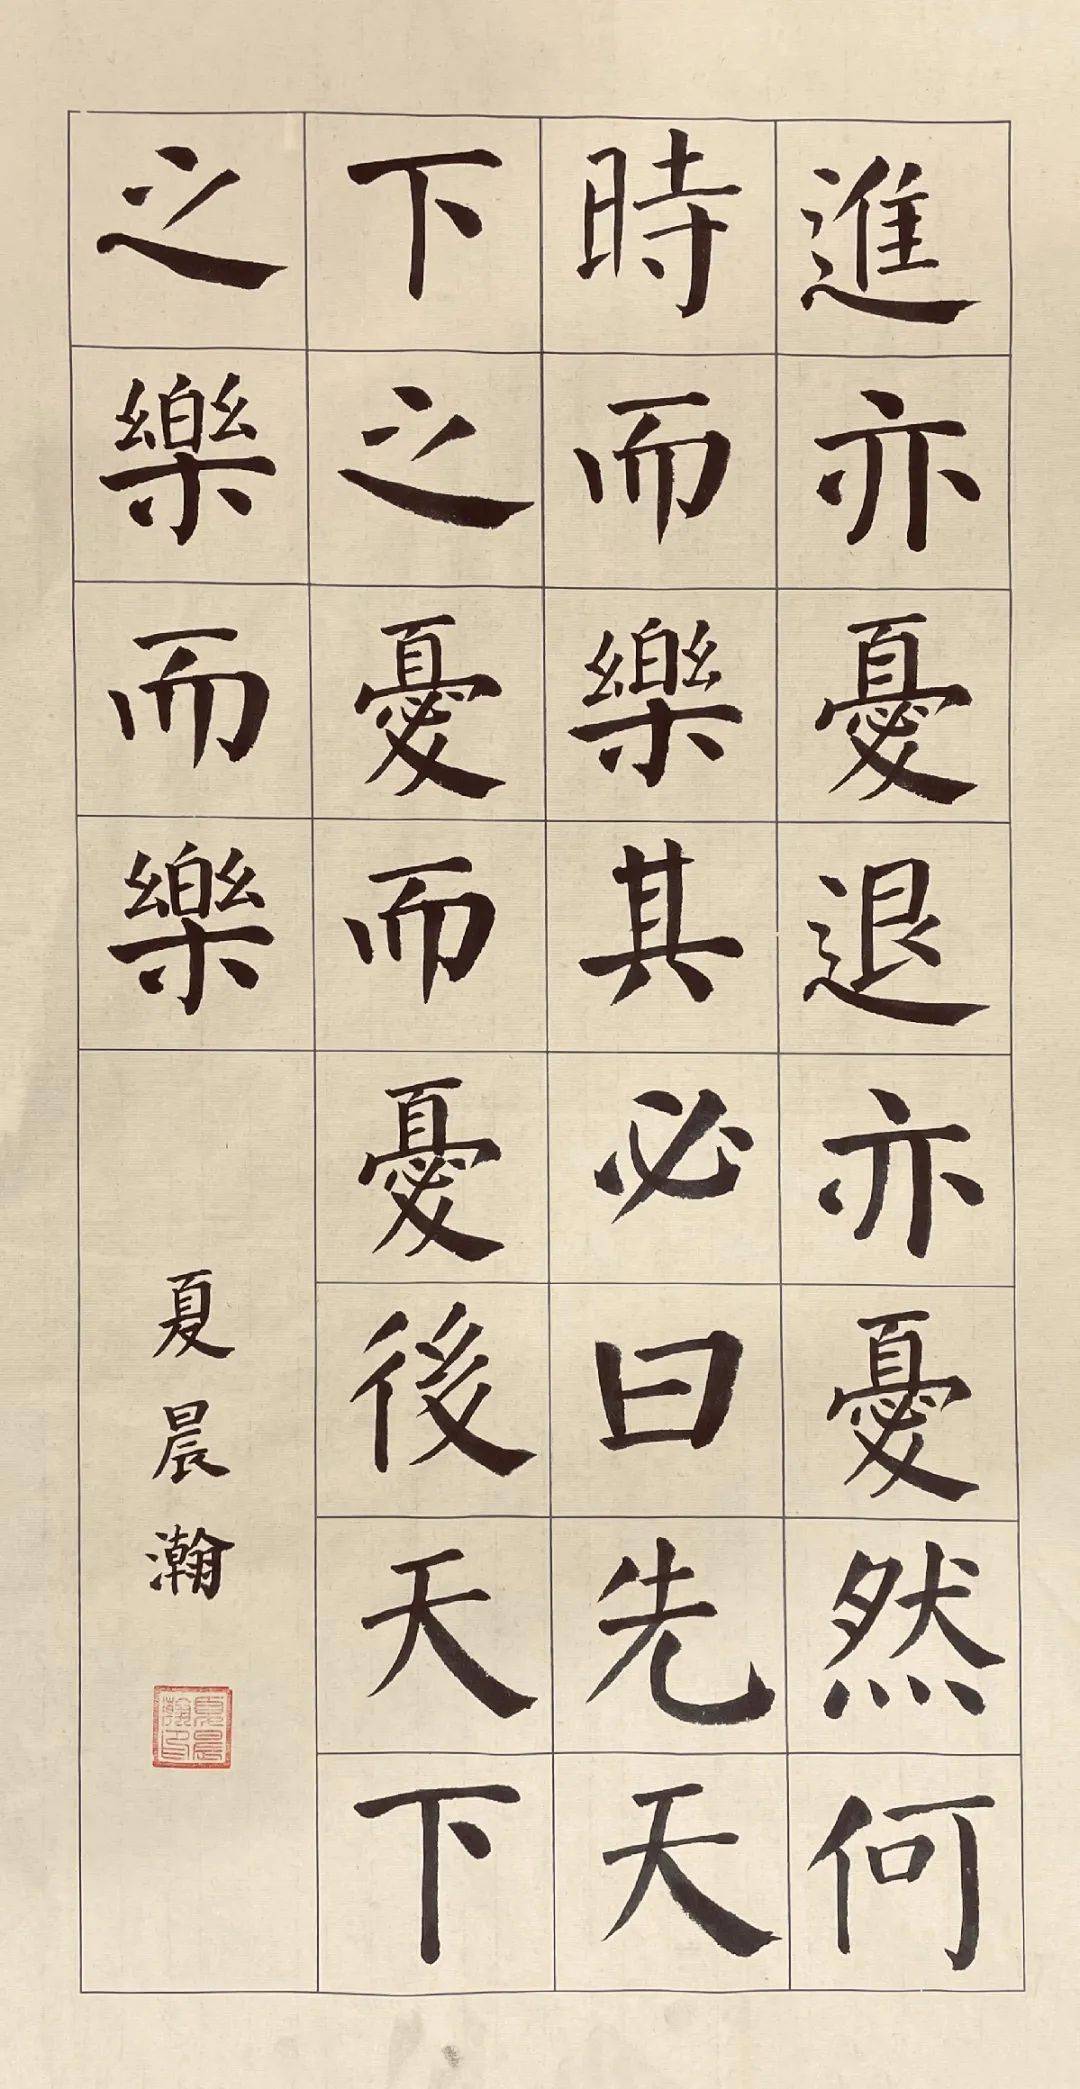 進亦憂退亦憂然何
時而樂其必曰先天
下之憂而憂後天下
之樂而樂
夏晨瀚
夏晨瀚印